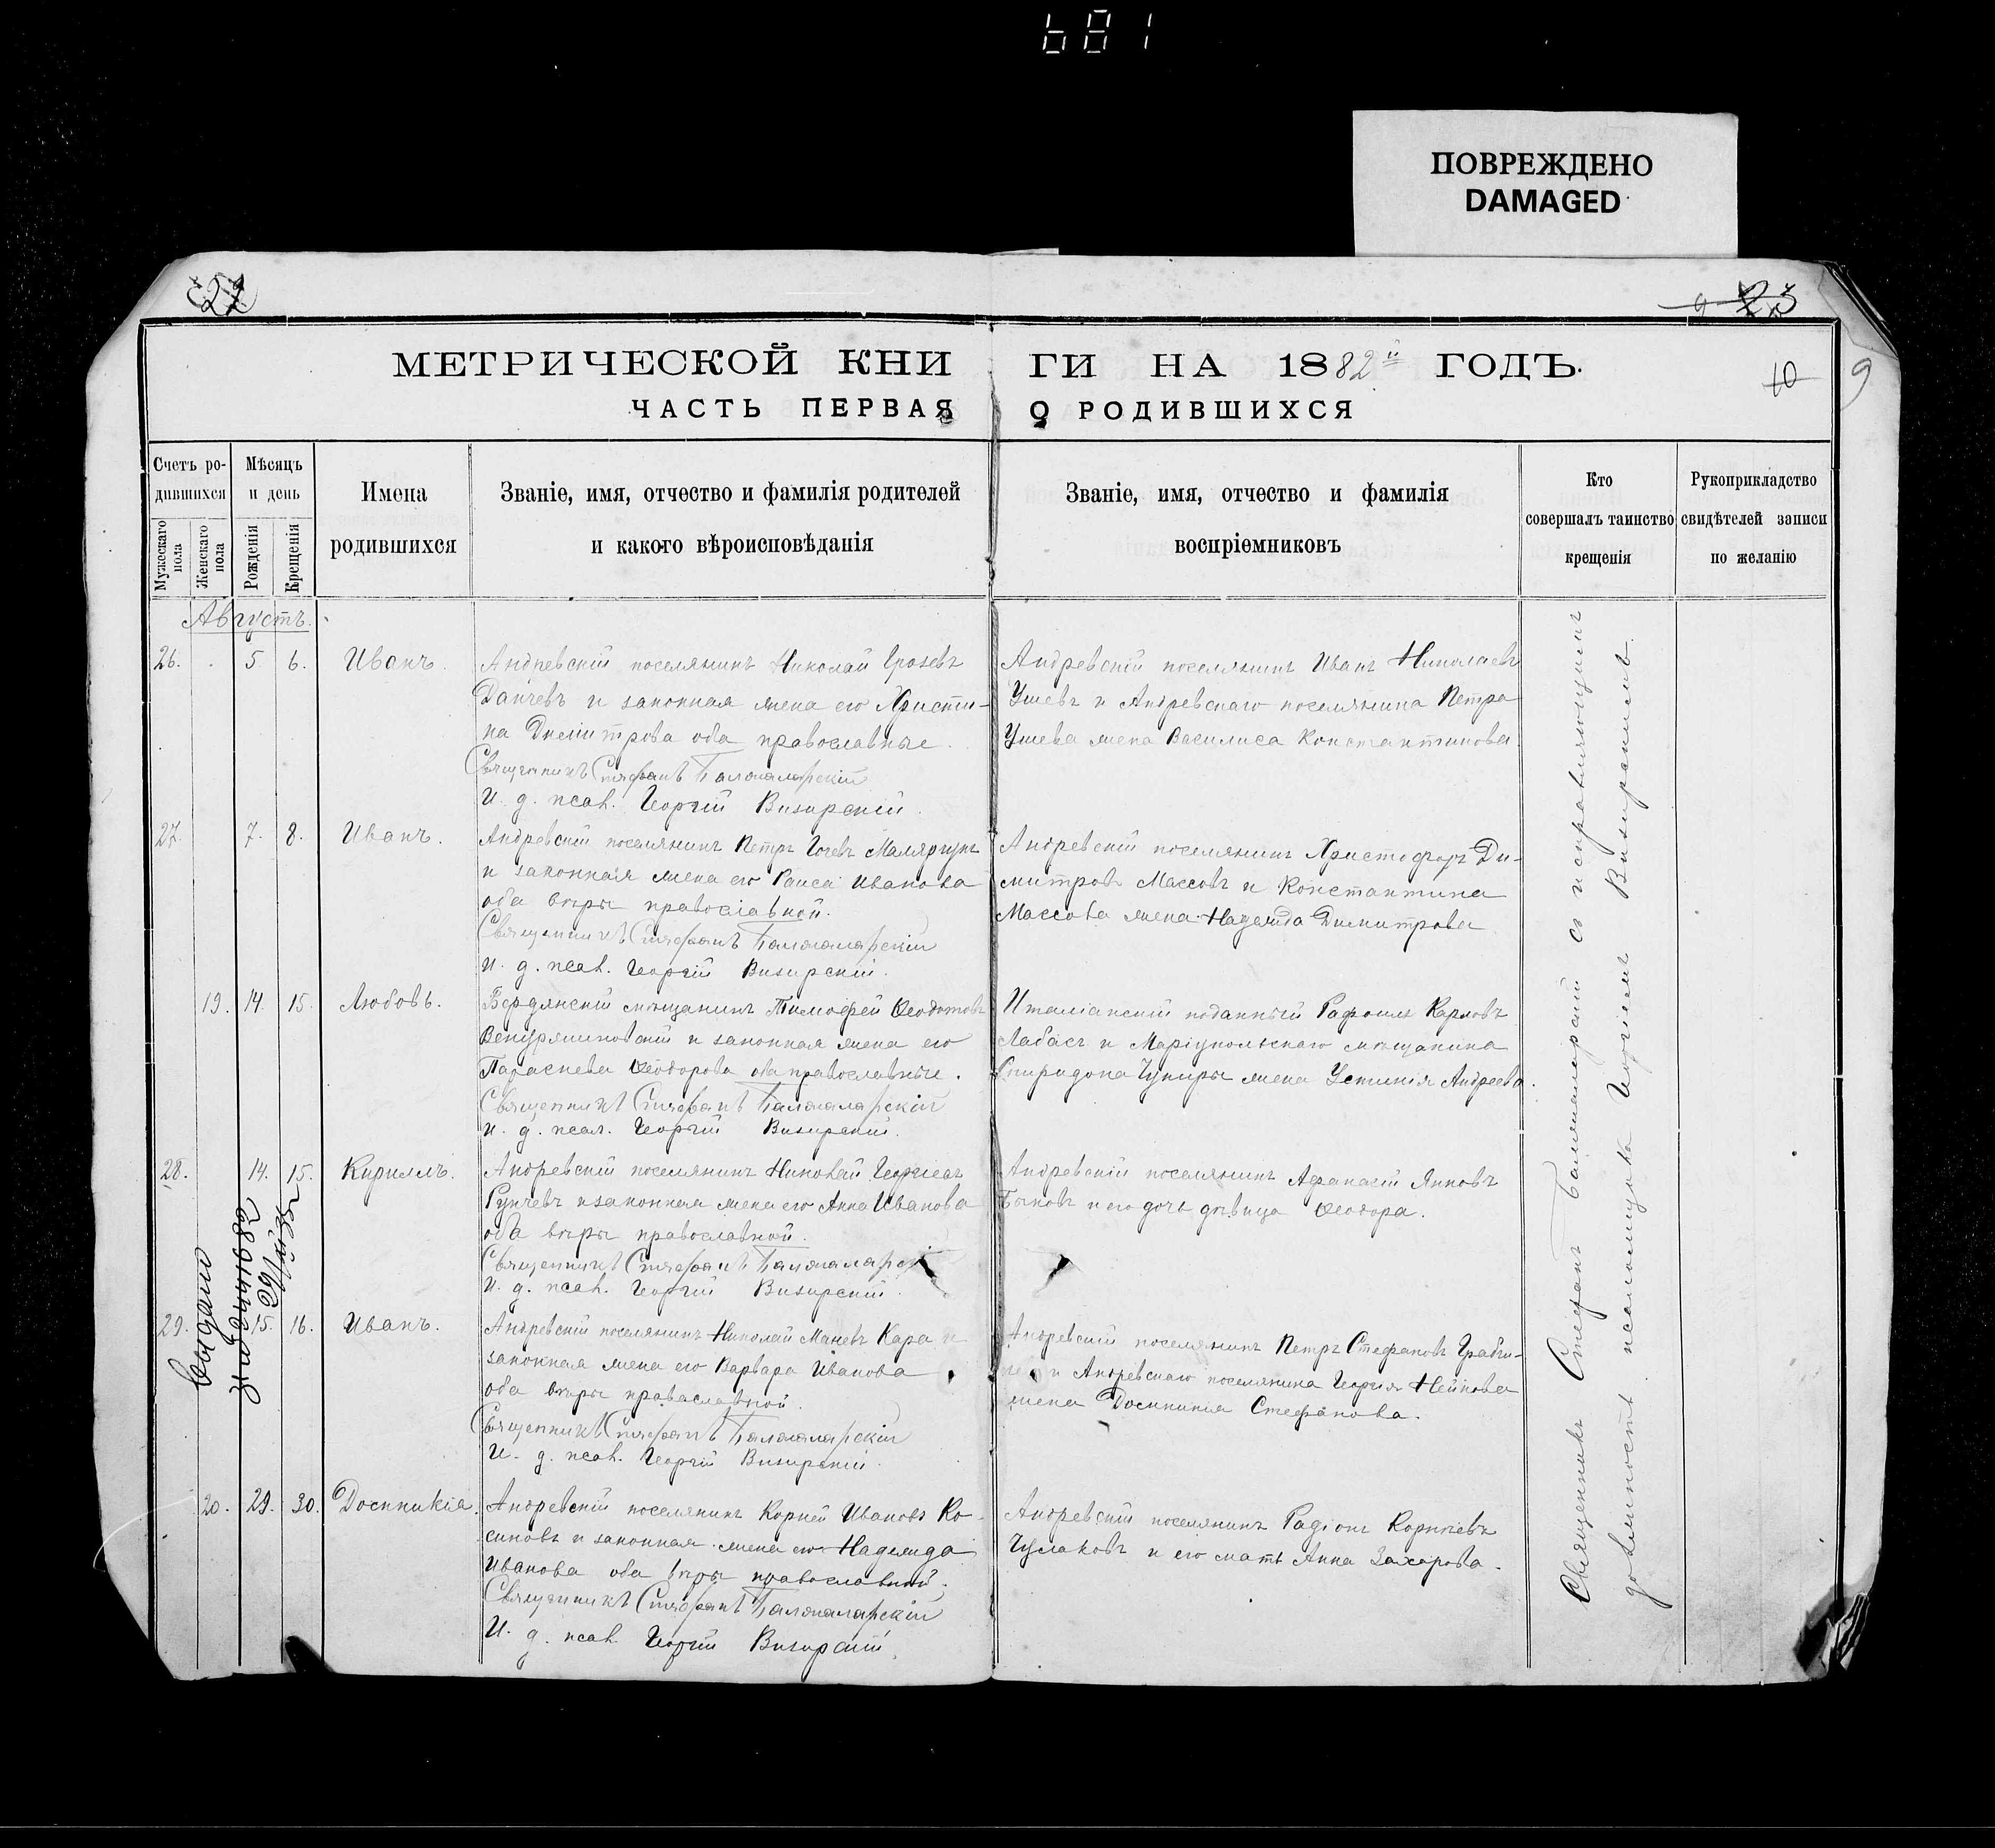 681
ПОВРЕЖДЕНО
DAMAGED
22
23
МЕТРИЧЕСКОЙ КНИ ГИ НА 1882й ГОДЪ.
10
9
ЧАСТЬ ПЕРВАЯ О РОДИВШИХСЯ
Счетъ ро-
дившихся
Мужескаго
пола
Женскаго
пола
Мѣсяцъ
и день
Рожденія
Крещенія
Имена
родившихся
Званіе, имя, отчество и фамилія родителей
и какого вѣроисповѣданія
Званіе, имя, отчество и фамилія
воспріемниковъ
Кто
совершалъ таинство
крещенія
Рукоприкладство
свидѣтелей записи
по желанію
Августъ.
26. 5 6. Иванъ.
Андревскій поселянинъ Николай
Данчевъ и законная жена его Христи-
на Димитрова оба православные.
Священникъ Стефанъ
И. д. псал. Георгій Визирскій.
Андревскій поселянинъ Иванъ Николаевъ
и Андревскаго поселянина Петра
жена Василиса Константинова.
27. 7. 8. Иванъ.
Андревскій поселянинъ Петръ
и законная жена его Раиса Иванова
оба вѣры православной.
Священникъ Стефанъ
И. д. псал. Георгій Визирскій.
Андревскій поселянинъ Христофоръ Ди-
митровъ Массовъ и Константина
Массова жена Надежда Димитрова
19. 14. 15. Любовь.
Бердянскій мѣщанинъ Тимофей Ѳеодотовъ
и законная жена его
Параскева Ѳеодорова оба православные.
Священникъ Стефанъ
И. д. псал. Георгій Визирскій.
Италіанскій поданный Карловъ
и Маріупольскаго мѣщанина
Спиридона жена Устинія Андреева.
28. 14. 15. Кириллъ.
Андревскій поселянинъ Николай Георгіевъ
Рунчевъ и законная жена его Анна Иванова
оба вѣры православной.
Священникъ Стефанъ
И. д. псал. Георгій Визирскій.
Андревскій поселянинъ Афанасій Янновъ
Быковъ и его дочь дѣвица Ѳеодора.
29. 15. 16. Иванъ.
Андревскій поселянинъ Николай Маневъ Кара и
законная жена его Варвара Иванова
оба вѣры православной.
Священникъ Стефанъ
И. д. псал. Георгій Визирскій.
Андревскій поселянинъ Петръ Стефановъ
и Андревскаго поселянина Георгія Нейкова
жена Домникія Стефанова.
20. 29. 30. Домникія.
Андревскій поселянинъ Корней Ивановъ Ко-
симовъ и законная жена его Надежда
Иванова оба вѣры православной.
Священникъ Стефанъ
И. д. псал. Георгій Визирскій.
Андревскій поселянинъ Радіонъ Корніевъ
Чулаковъ и его мать Анна Захарова.
Священникъ Стефанъ съ исправляющимъ
должность псаломщика Георгіемъ Визирскимъ.
Выдано